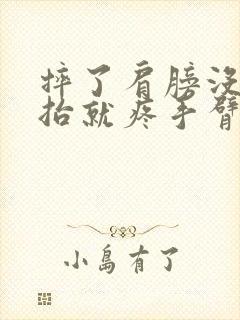 摔了肩膀没
抬就疼手臂
小島有了